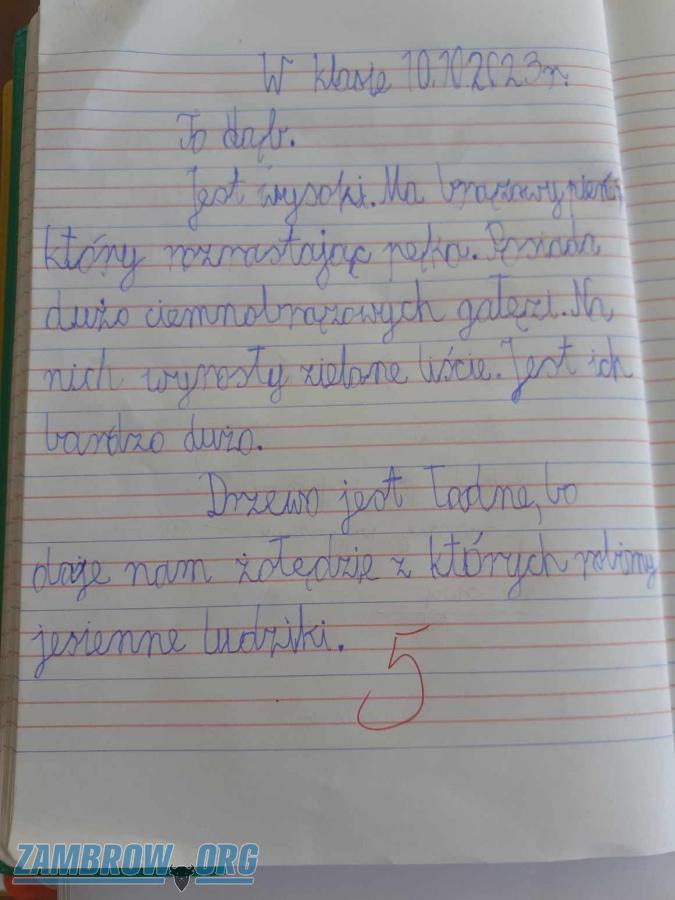 W klasie 10.10.2023r.
To dąb.
Jest wysoki. Ma brązowy pień,
który rozrastając pęka. Posiada
dużo ciemnobrązowych gałęzi. Na
nich wyrosły zielone liście. Jest ich
bardzo dużo.
Drzewo jest ładne, bo
daje nam żołędzie z których robimy
jesienne ludziki.
5
ZAMBROW.ORG